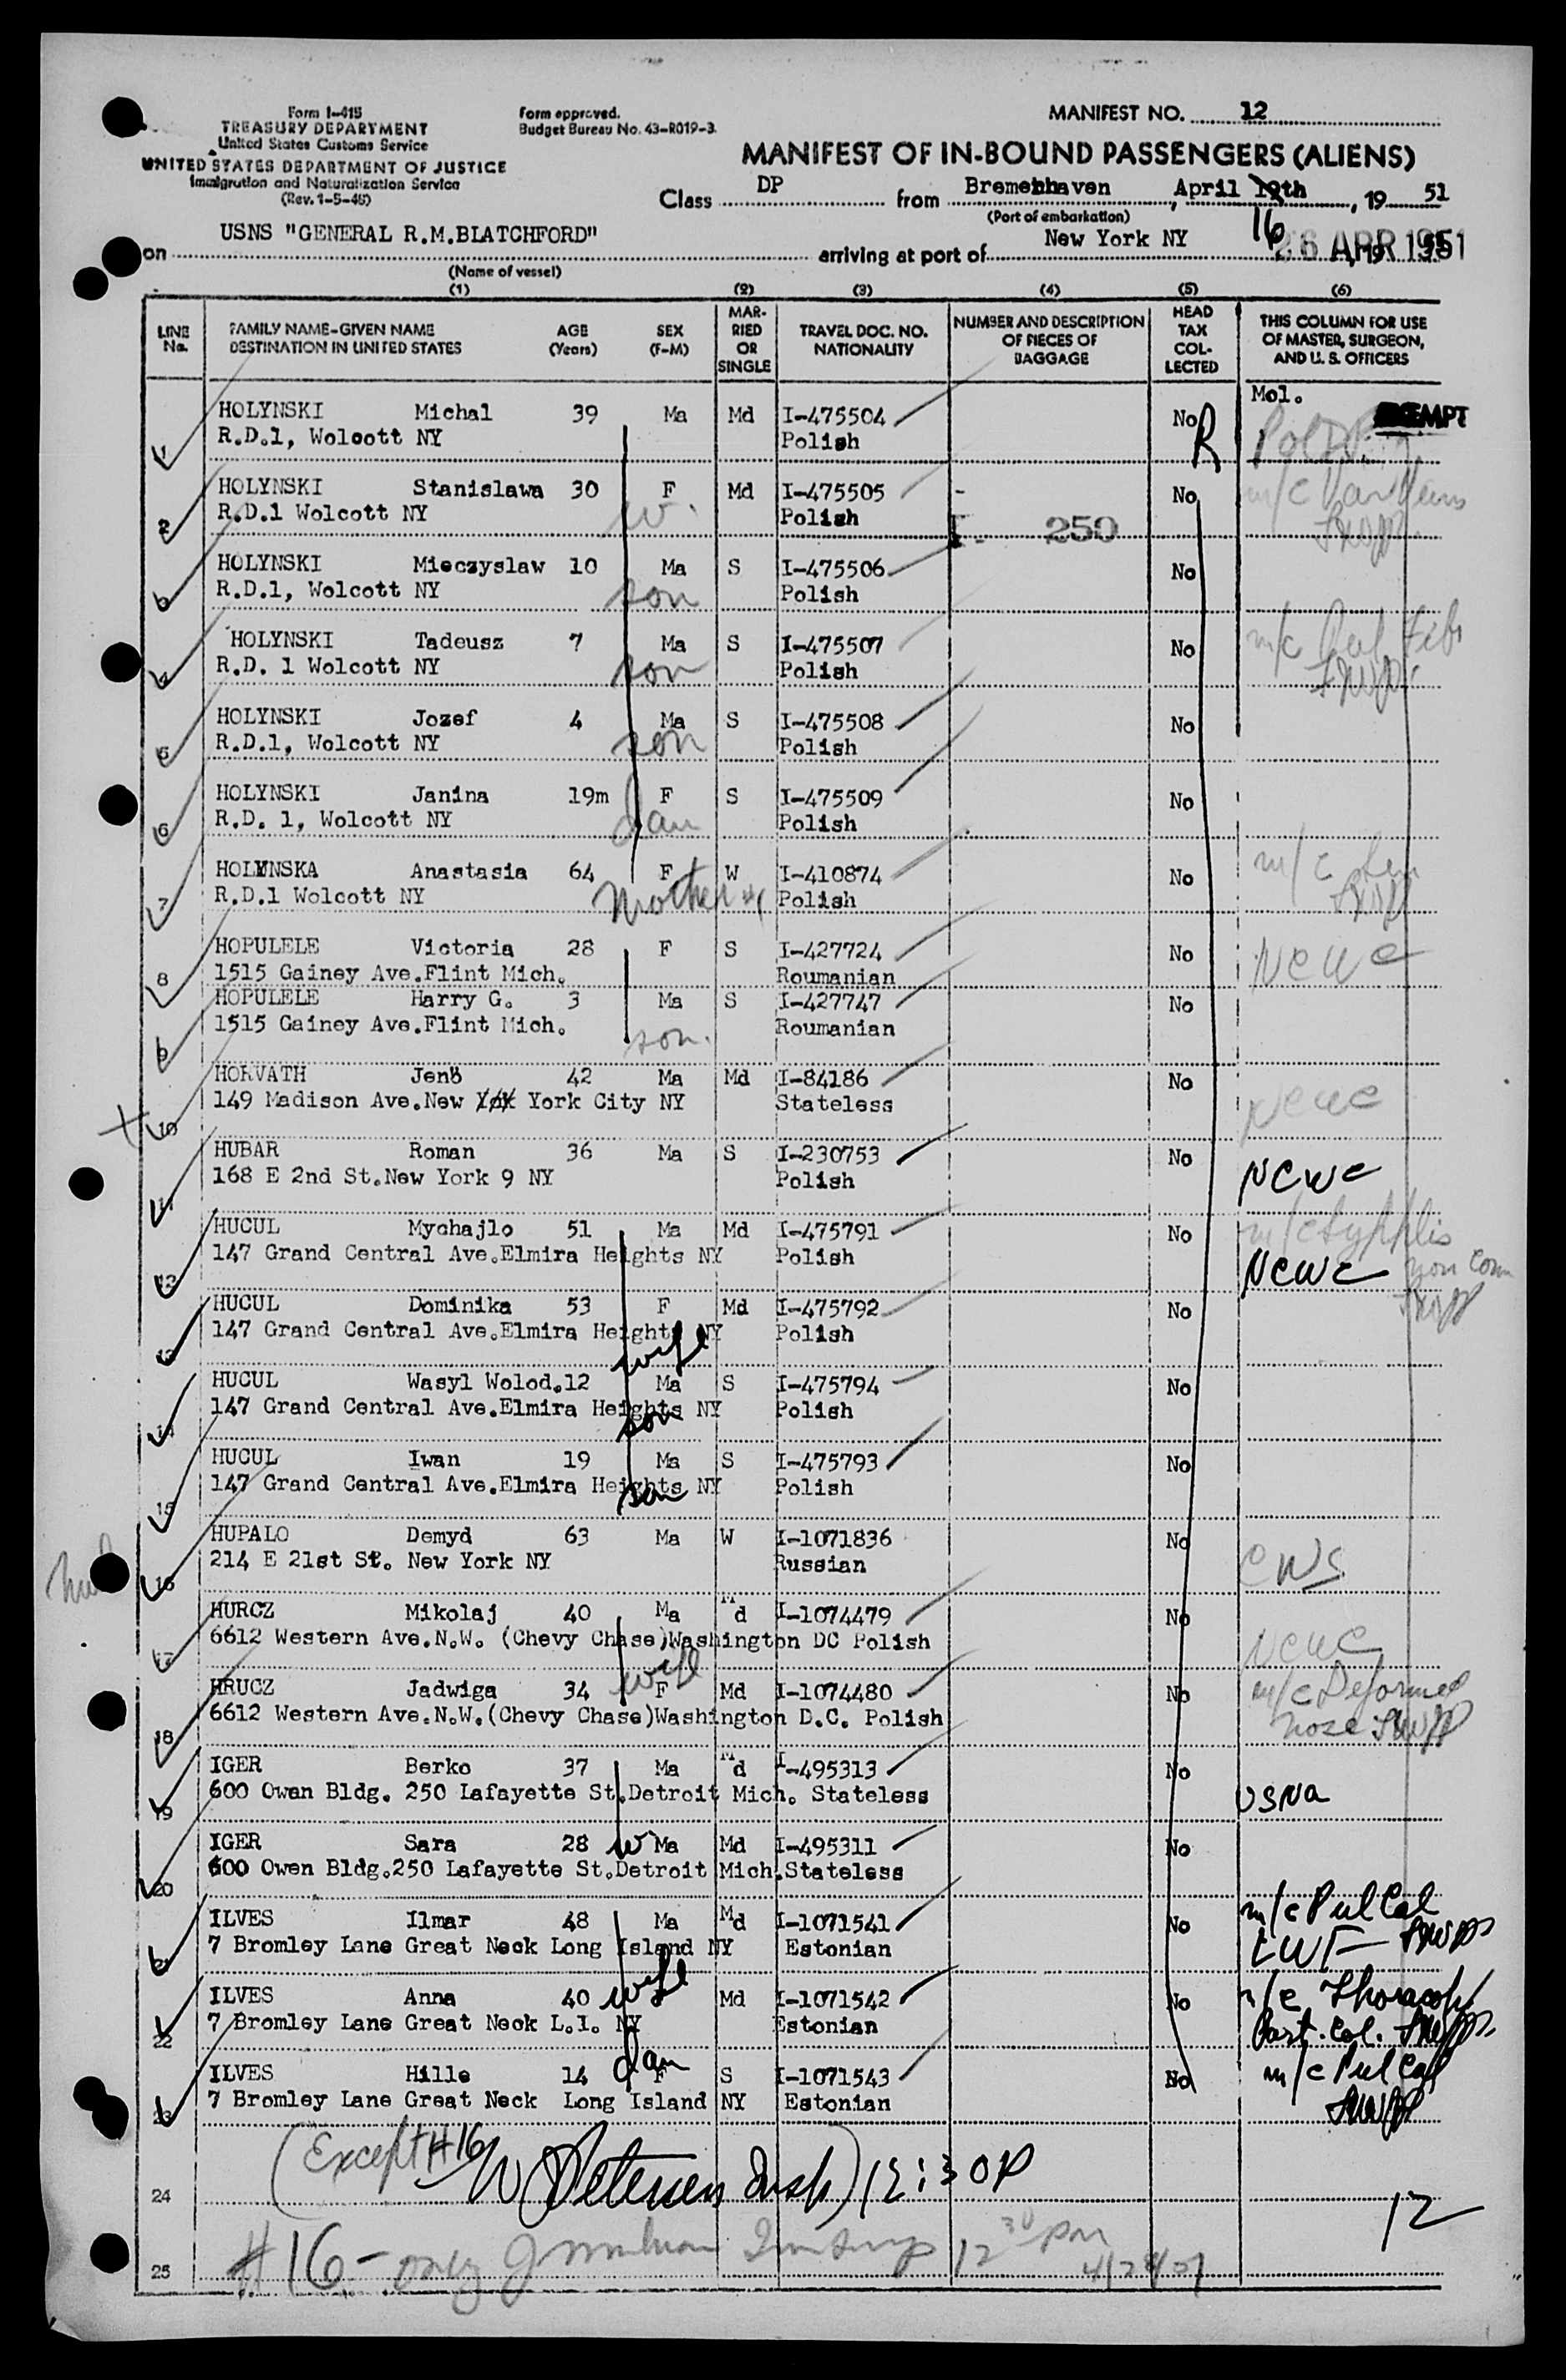 Form I-415
TREASURY DEPARTMENT
United States Customs Service
UNITED STATES DEPARTMENT OF JUSTICE
Immigration and Naturalization Service
(Rev. 1-5-48)
Form approved.
Budget Bureau No. 43-R019-3.
MANIFEST NO. 12
MANIFEST OF IN-BOUND PASSENGERS (ALIENS)
Class DP from Bremerhaven, April 19th, 19 51
(Port of embarkation) 16
on USNS "GENERAL R.M.BLATCHFORD" arriving at port of New York NY 26 APR 1951
(Name of vessel)
(1) (2) (3) (4) (5) (6)
LINE No. FAMILY NAME-GIVEN NAME DESTINATION IN UNITED STATES AGE (Years) SEX (F-M) MARRIED OR SINGLE TRAVEL DOC. NO. NATIONALITY NUMBER AND DESCRIPTION OF PIECES OF BAGGAGE HEAD TAX COLLECTED THIS COLUMN FOR USE OF MASTER, SURGEON, AND U. S. OFFICERS
Mol.
1 HOLYNSKI Michal 39 Ma Md I-475504 No R
R.D.1, Wolcott NY Polish
2 HOLYNSKI Stanislawa 30 F Md I-475505 - No
R.D.1 Wolcott NY w. Polish I- 250
3 HOLYNSKI Mieczyslaw 10 Ma S I-475506 No
R.D.1, Wolcott NY son Polish
4 HOLYNSKI Tadeusz 7 Ma S I-475507 No
R.D. 1 Wolcott NY son Polish
5 HOLYNSKI Jozef 4 Ma S I-475508 No
R.D.1, Wolcott NY son Polish
6 HOLYNSKI Janina 19m F S I-475509 No
R.D. 1, Wolcott NY dau Polish
7 HOLYNSKA Anastasia 64 F W I-410874 No m/c
R.D.1 Wolcott NY Mother Polish
8 HOPULELE Victoria 28 F S I-427724 No NCWC
1515 Gainey Ave.Flint Mich. Roumanian
9 HOPULELE Harry G. 3 Ma S I-427747 No
1515 Gainey Ave.Flint Mich. son. Roumanian
10 HORVATH Jenö 42 Ma Md I-84186 No NCWC
149 Madison Ave.New York City NY Stateless
11 HUBAR Roman 36 Ma S I-230753 No NCWC
168 E 2nd St.New York 9 NY Polish
12 HUCUL Mychajlo 51 Ma Md I-475791 No m/c Syphilis
147 Grand Central Ave.Elmira Heights NY Polish NCWC non com
13 HUCUL Dominika 53 F Md I-475792 No
147 Grand Central Ave.Elmira Heights NY wife Polish
14 HUCUL Wasyl Wolod.12 Ma S I-475794 No
147 Grand Central Ave.Elmira Heights NY son Polish
15 HUCUL Iwan 19 Ma S I-475793 No
147 Grand Central Ave.Elmira Heights NY son Polish
16 HUPALO Demyd 63 Ma W I-1071836 No CWS
214 E 21st St. New York NY Russian
17 HURCZ Mikolaj 40 Ma Md I-1074479 No NCWC
6612 Western Ave.N.W. (Chevy Chase)Washington DC Polish
18 HRUCZ Jadwiga 34 wife F Md I-1074480 No m/c Deformed
6612 Western Ave.N.W.(Chevy Chase)Washington D.C. Polish nose
19 IGER Berko 37 Ma Md I-495313 No
600 Owen Bldg. 250 Lafayette St.Detroit Mich. Stateless USNA
20 IGER Sara 28 w Ma Md I-495311 No
600 Owen Bldg.250 Lafayette St.Detroit Mich.Stateless
21 ILVES Ilmar 48 Ma Md I-1071541 No m/c Pul Cal
7 Bromley Lane Great Neck Long Island NY Estonian LWF
22 ILVES Anna 40 wife Md I-1071542 No
7 Bromley Lane Great Neck L.I. NY Estonian
23 ILVES Hille 14 dau F S I-1071543 No m/c Pul Cal
7 Bromley Lane Great Neck Long Island NY Estonian
(Except #16 W Petersen Insp) 12:30P
24 12
25 #16 - only 12 30 pm